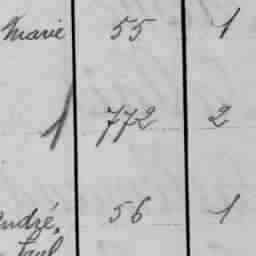 Marie 55 1
1 772 2
André, 56 1
Paul